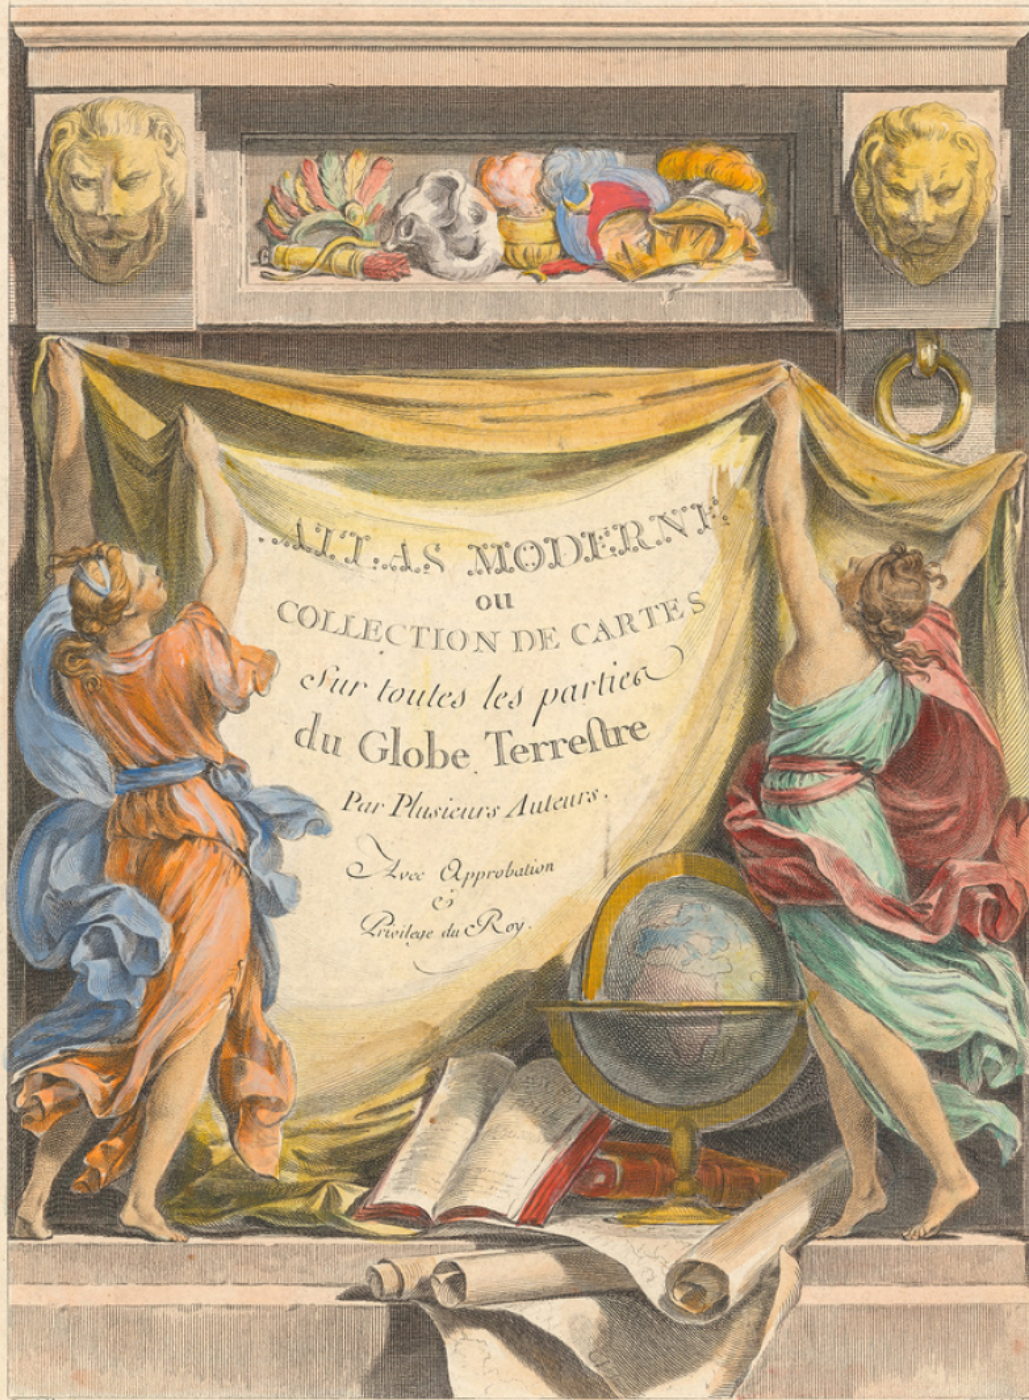 ATLAS MODERNE
ou
COLLECTION DE CARTES
Sur toutes les parties
du Globe Terreſtre
Par Plusieurs Auteurs.
Avec Approbation
&
Privilege du Roy.